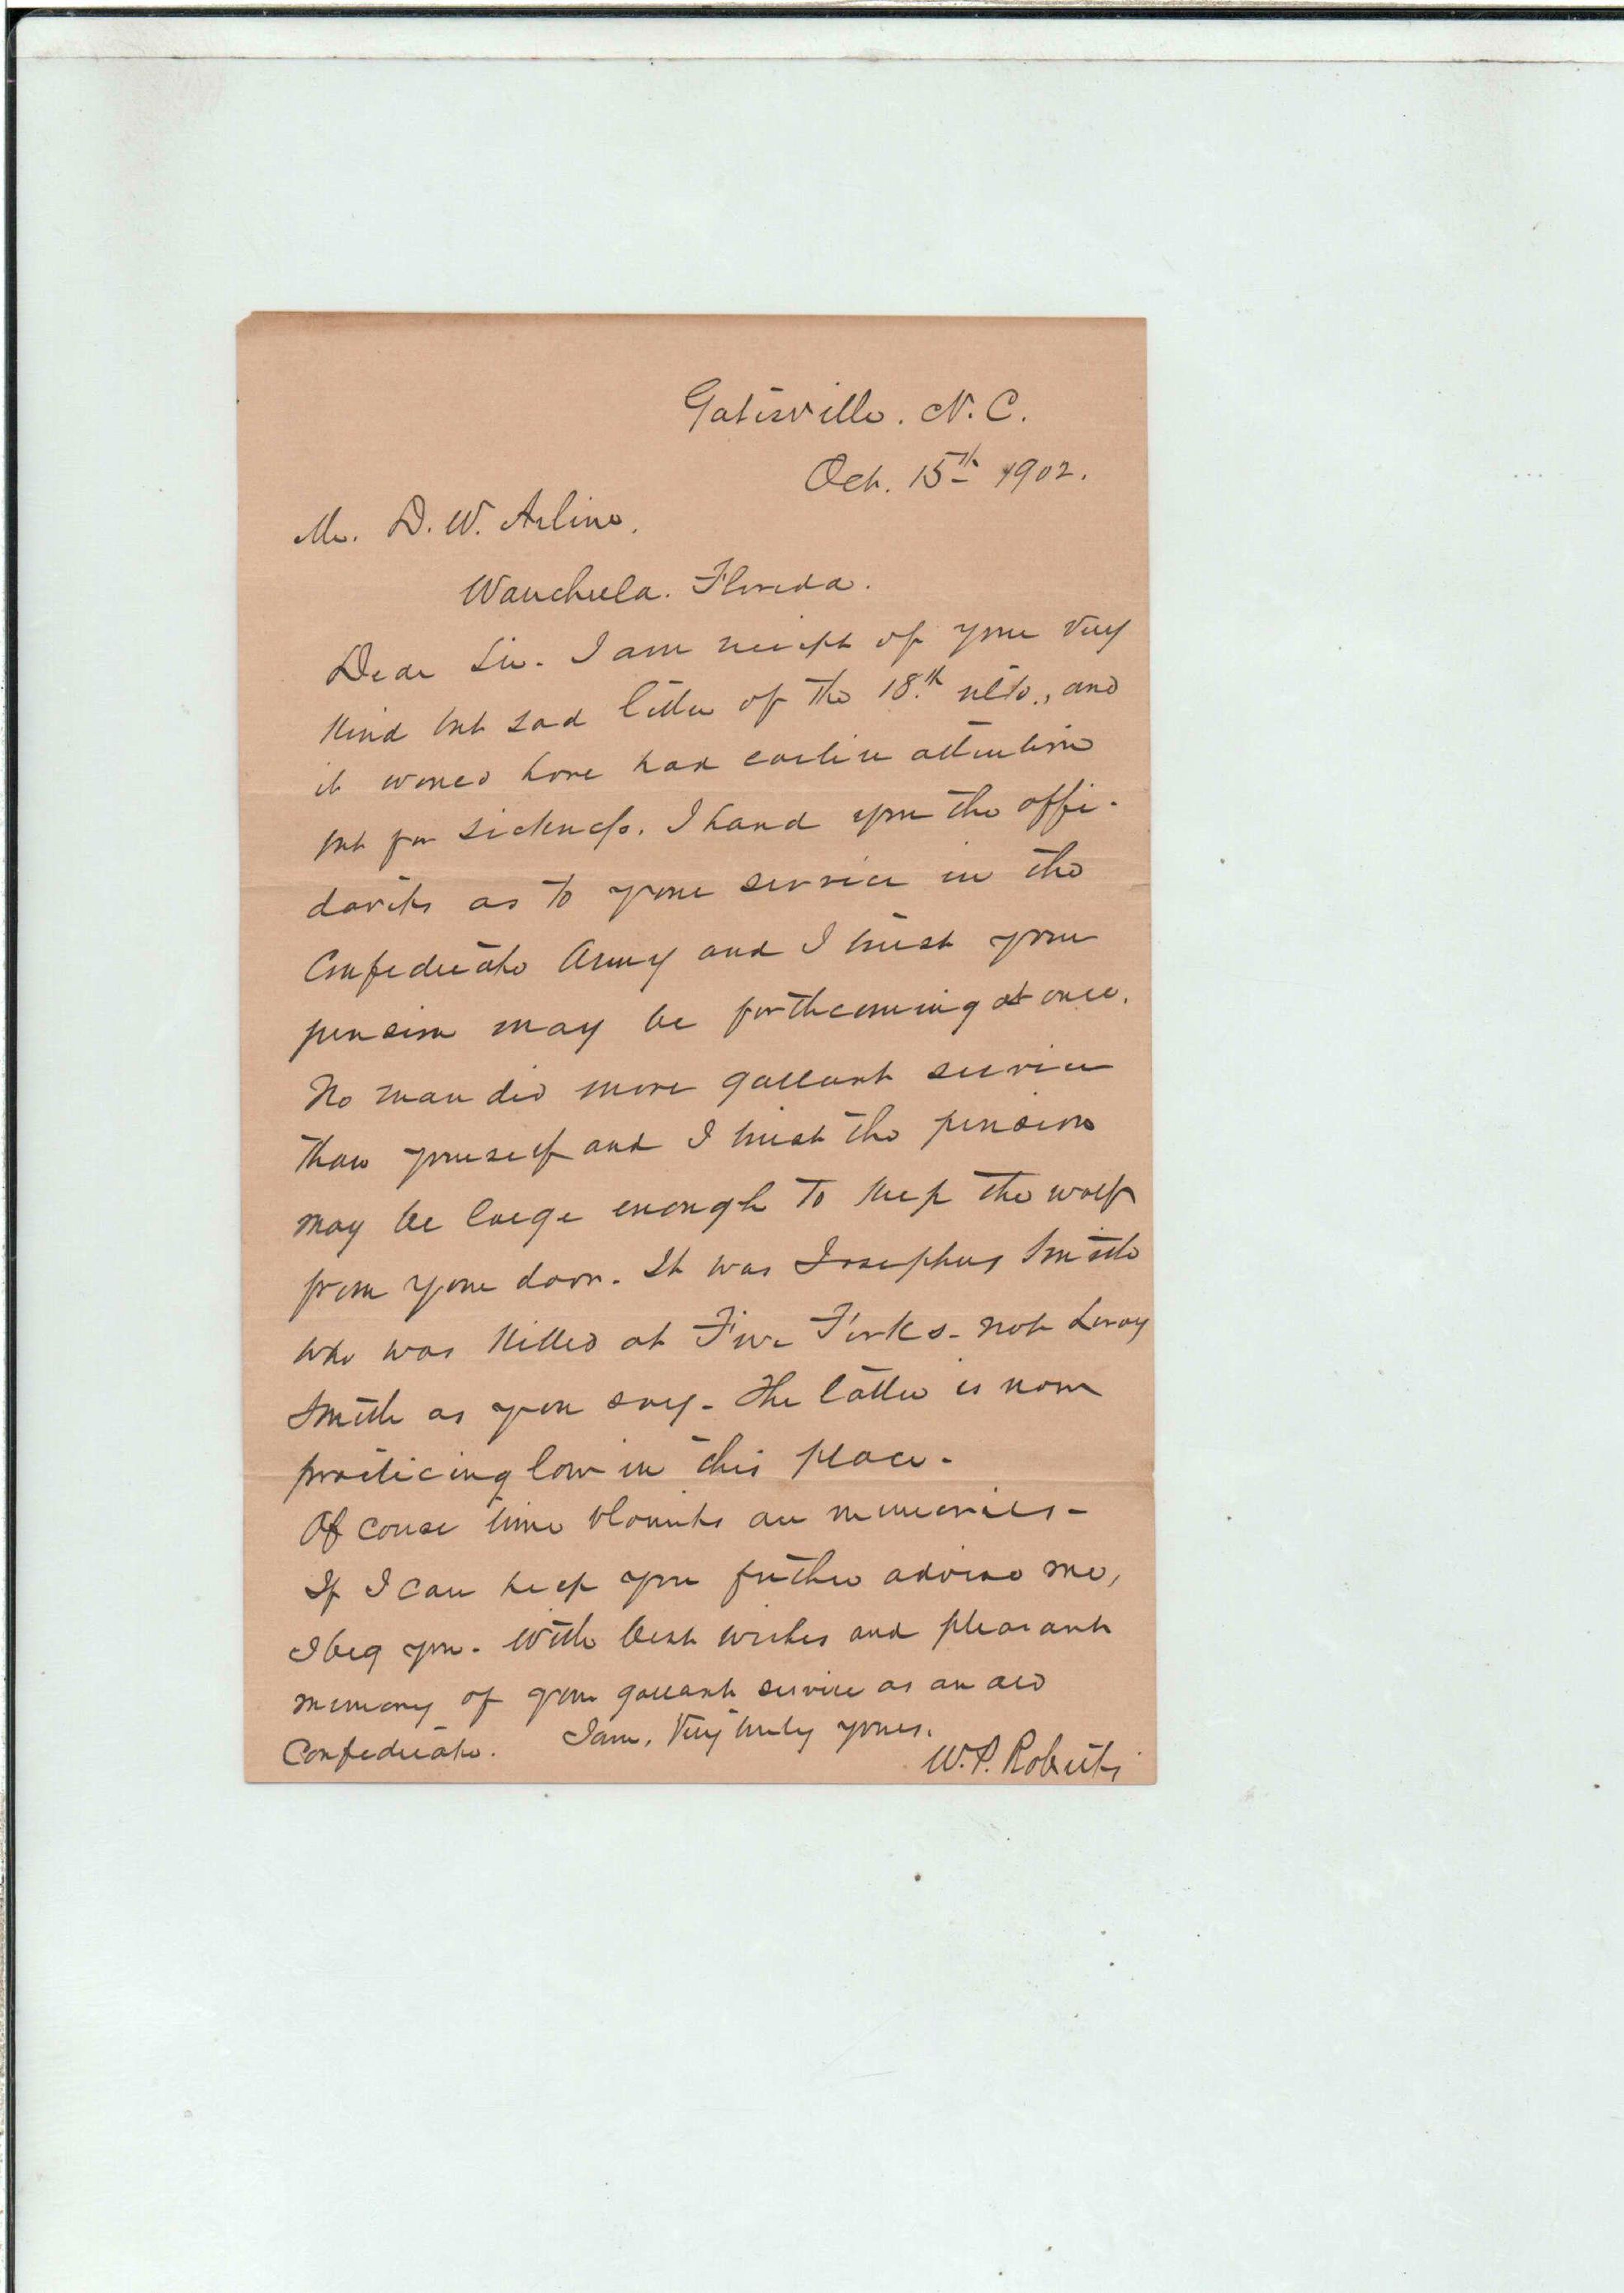 Gatesville. N. C.
Oct. 15th 1902.
Mr. D. W. Arline.
Wauchula. Florida.
Dear Sir. I am receipt of your very
kind but sad letter of the 18th ulto., and
it would have had earlier attention
but for sickness. I hand you the affi-
davits as to your service in the
Confederate Army and I trust your
pension may be forthcoming at once.
No man did more gallant service
than yourself and I trust the pension
may be large enough to keep the wolf
from your door. It was Josephus Smith
who was killed at Five Forks - not Leroy
Smith as you say - The latter is now
practicing law in this place -
Of course time blunts our memories -
If I can help you further advise me,
I beg you. With best wishes and pleasant
memory of your gallant service as an old
Confederate. I am, Very truly yours.
W. P. Roberts